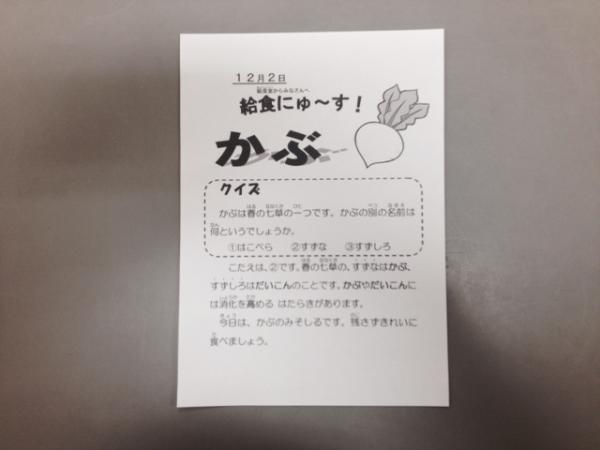 12月2日
給食室からみなさんへ
給食にゅ～す！
かぶ
クイズ
かぶは春の七草の一つです。かぶの別の名前は
何というでしょうか。
①はこべら　②すずな　③すずしろ
こたえは、②です。春の七草の、すずなはかぶ、
すずしろはだいこんのことです。かぶやだいこんに
は消化を高める はたらきがあります。
今日は、かぶのみそしるです。残さずきれいに
食べましょう。